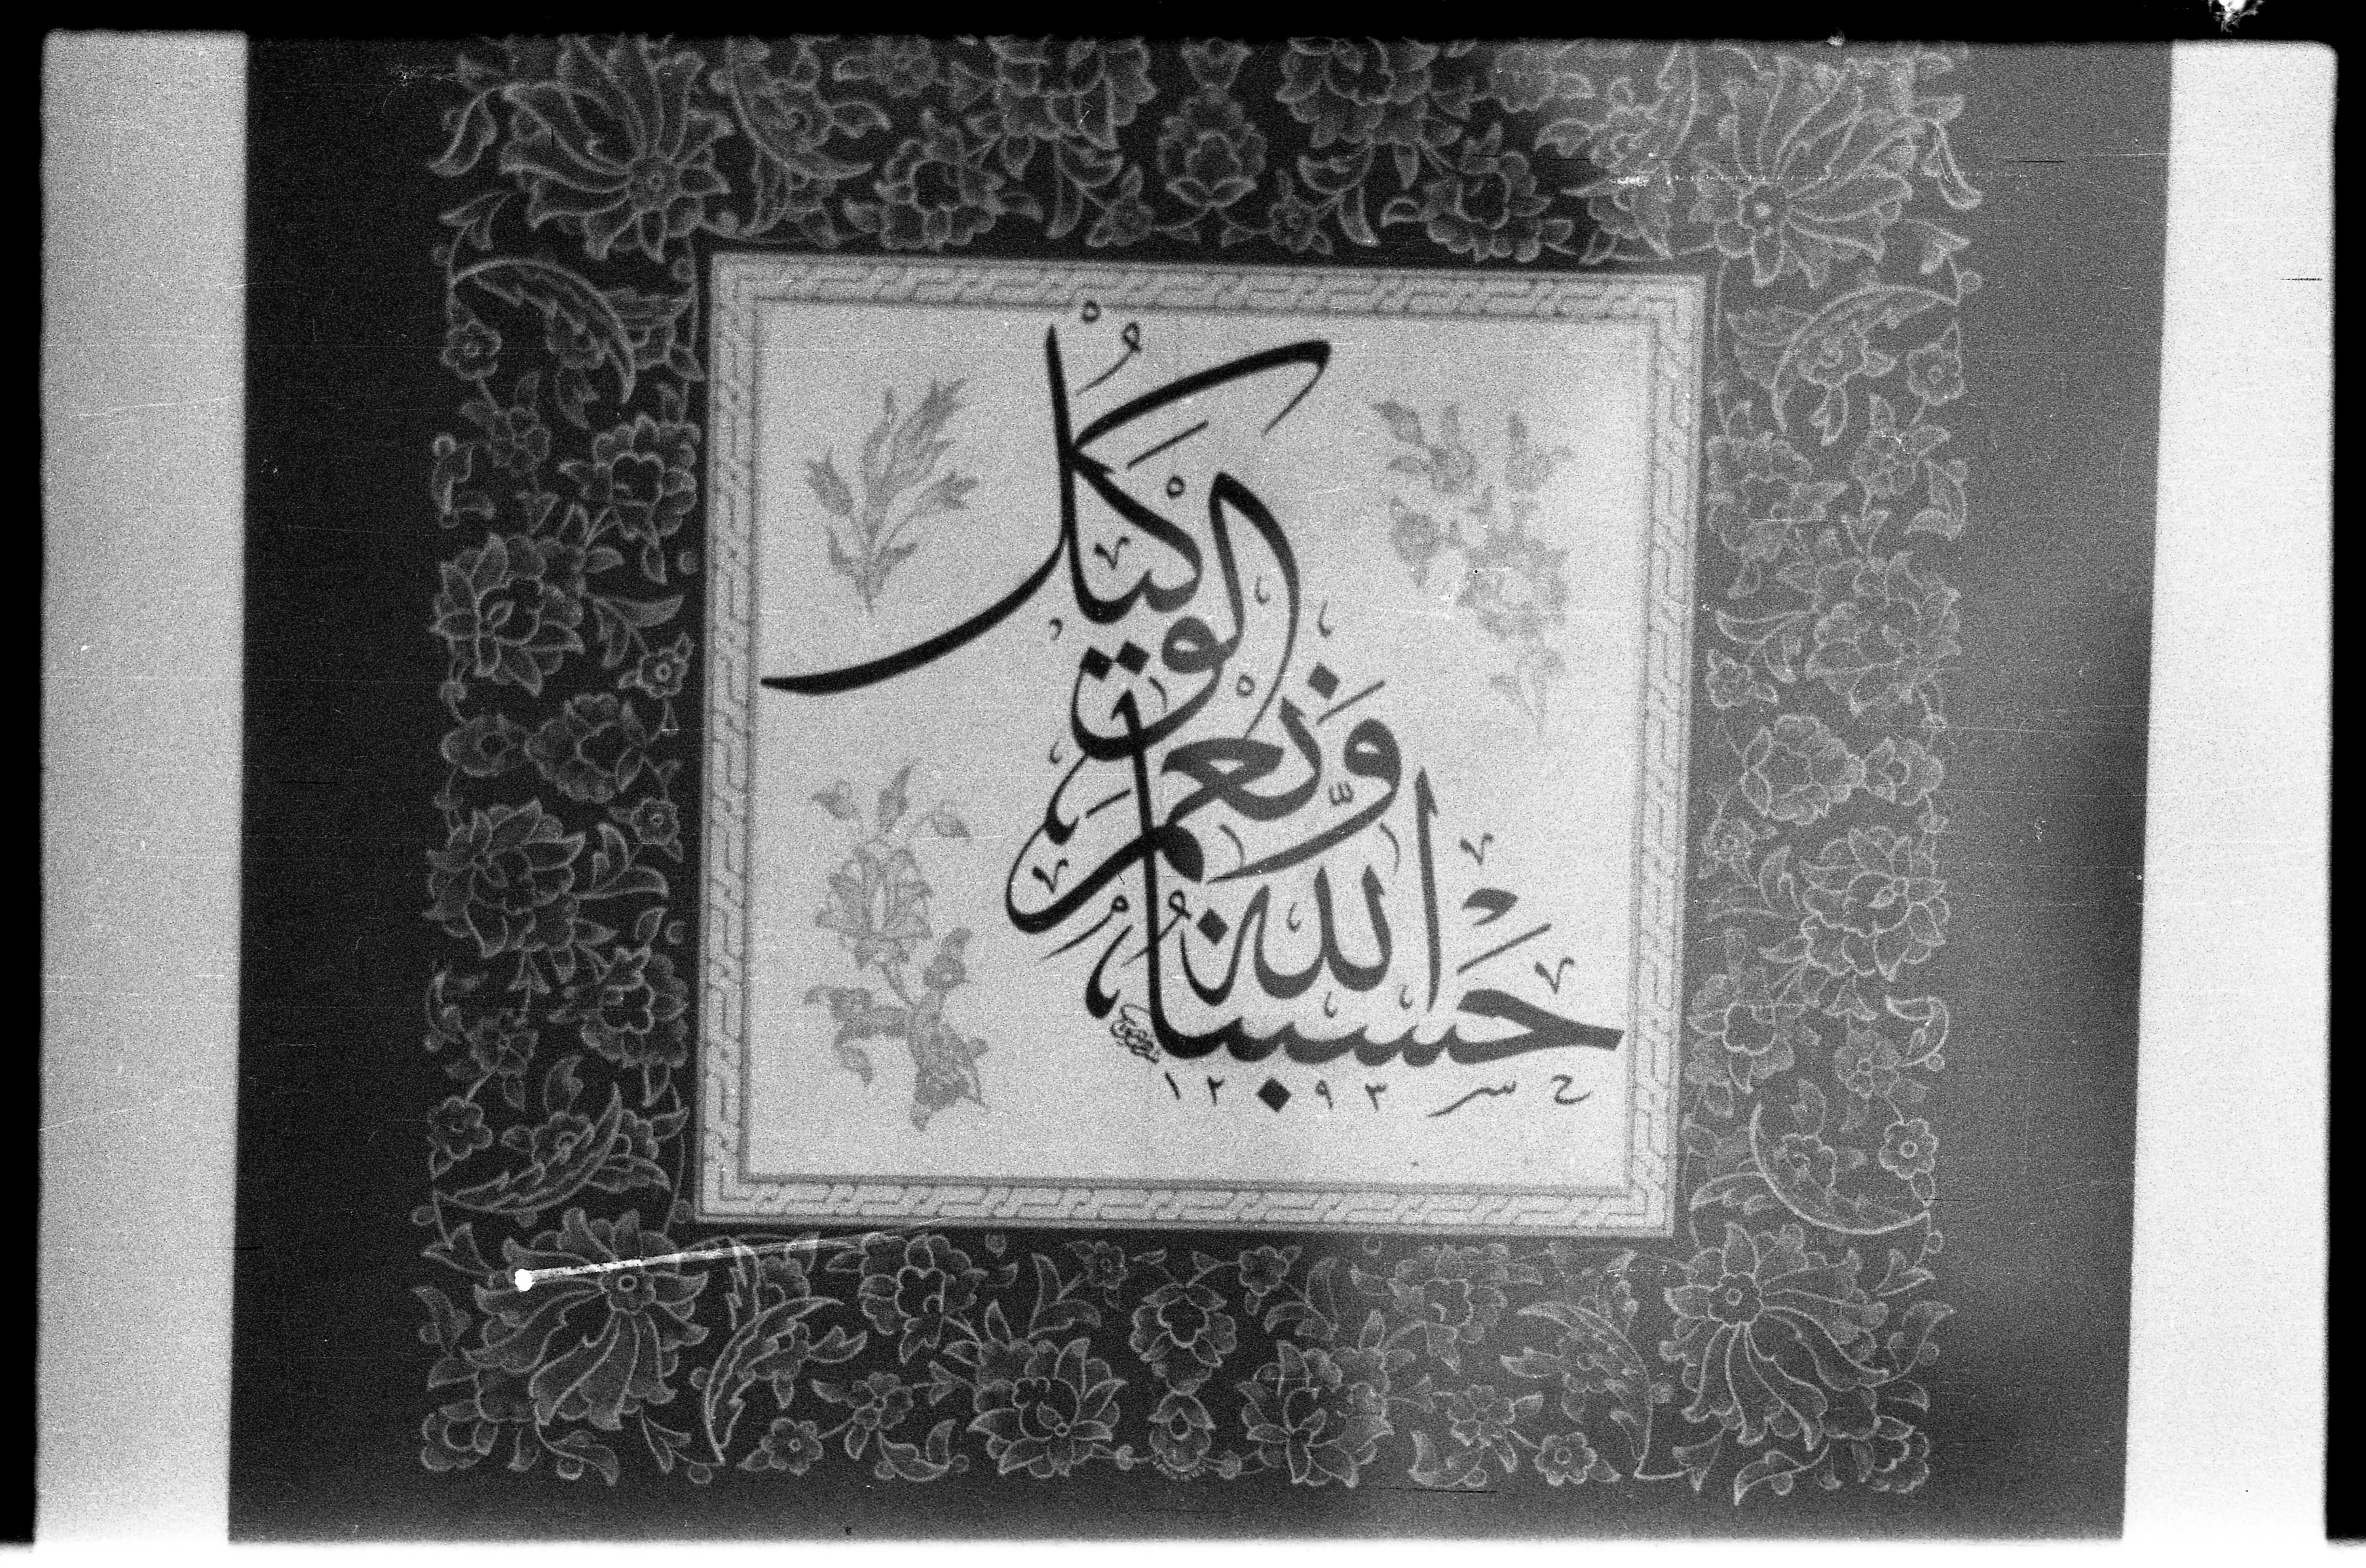 حَسْبُنَا اللّٰهُ
وَنِعْمَ
الْوَكِيلُ
ح س ١٢٩٣